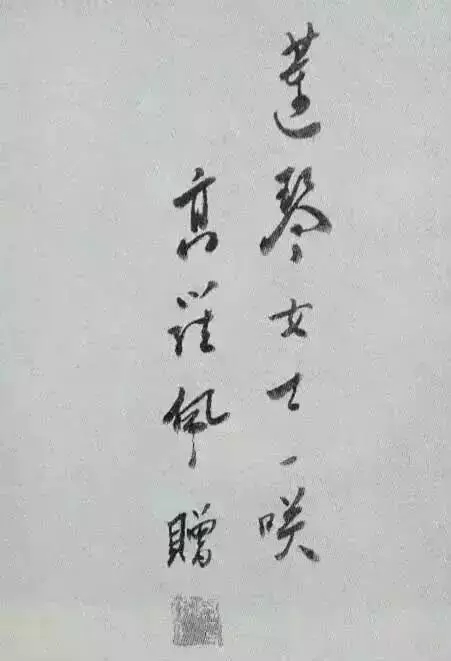 蓮琴女士一咲
高羅佩贈